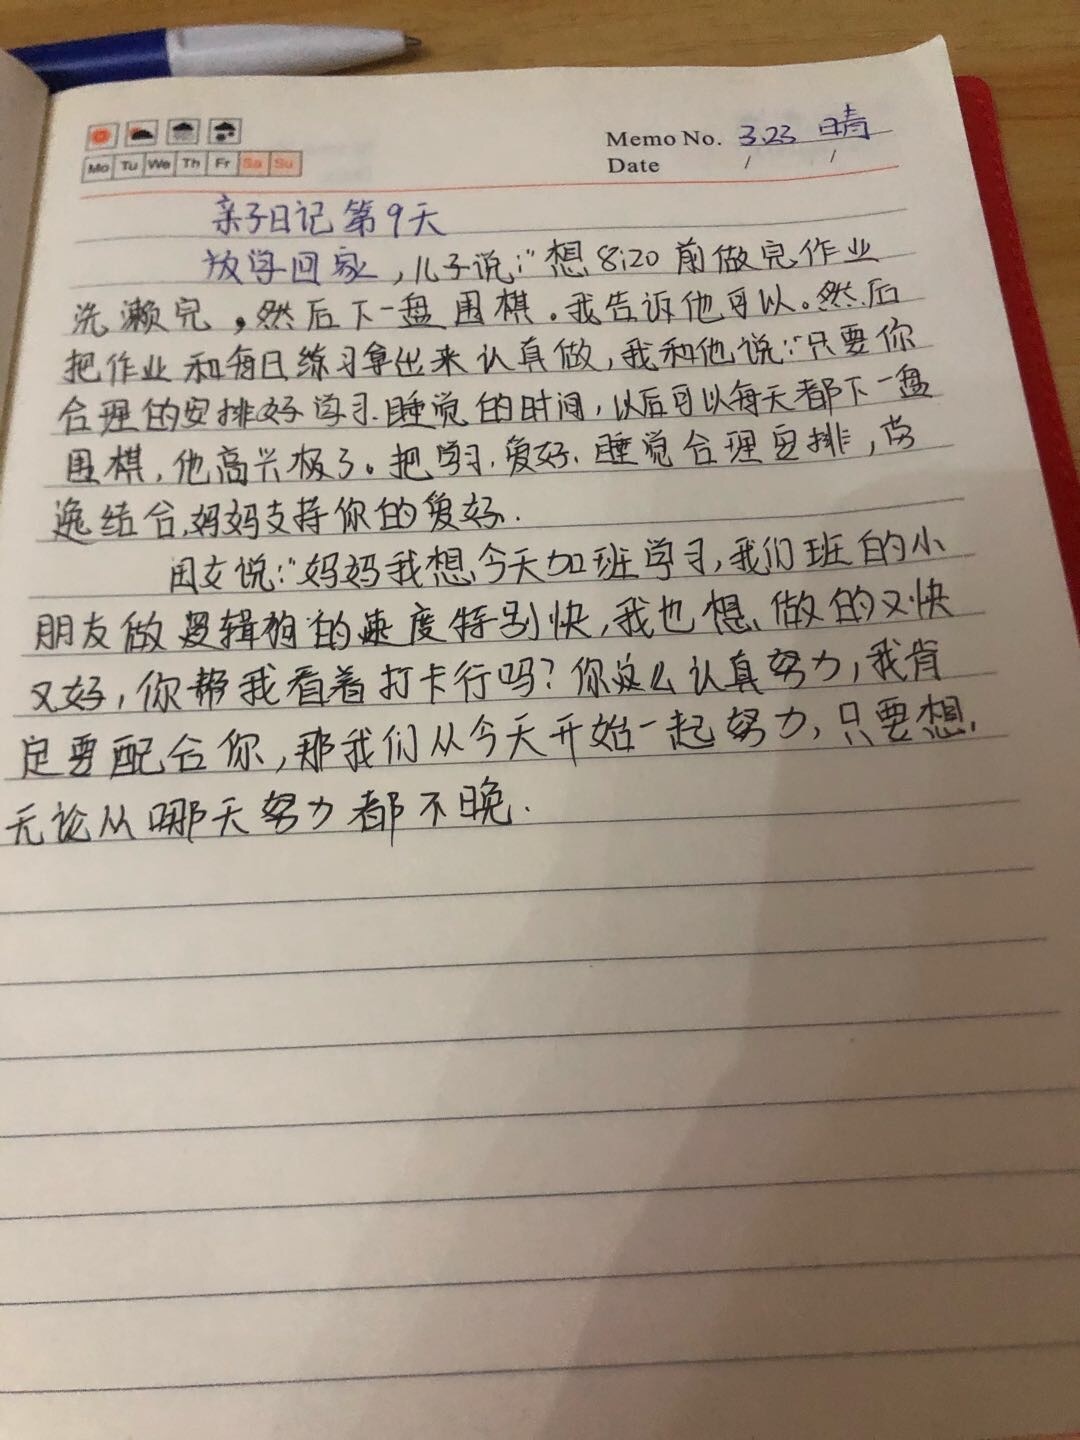 Mo Tu We Th Fr Sa Su
Memo No. 3.23 晴
Date / /
亲子日记第9天
放学回家,儿子说:"想8:20前做完作业
洗濑完,然后下一盘围棋。我告诉他可以。然后
把作业和每日练习拿出来认真做,我和他说:"只要你
合理的安排好学习.睡觉的时间,以后可以每天都下一盘
围棋,他高兴极了。把学习.爱好.睡觉合理安排,劳
逸结合,妈妈支持你的爱好.
闺女说:"妈妈我想今天加班学习,我们班的小
朋友做逻辑狗的速度特别快,我也想做的又快
又好,你帮我看着打卡行吗?你这么认真努力,我肯
定要配合你,那我们从今天开始一起努力,只要想,
无论从哪天努力都不晚.